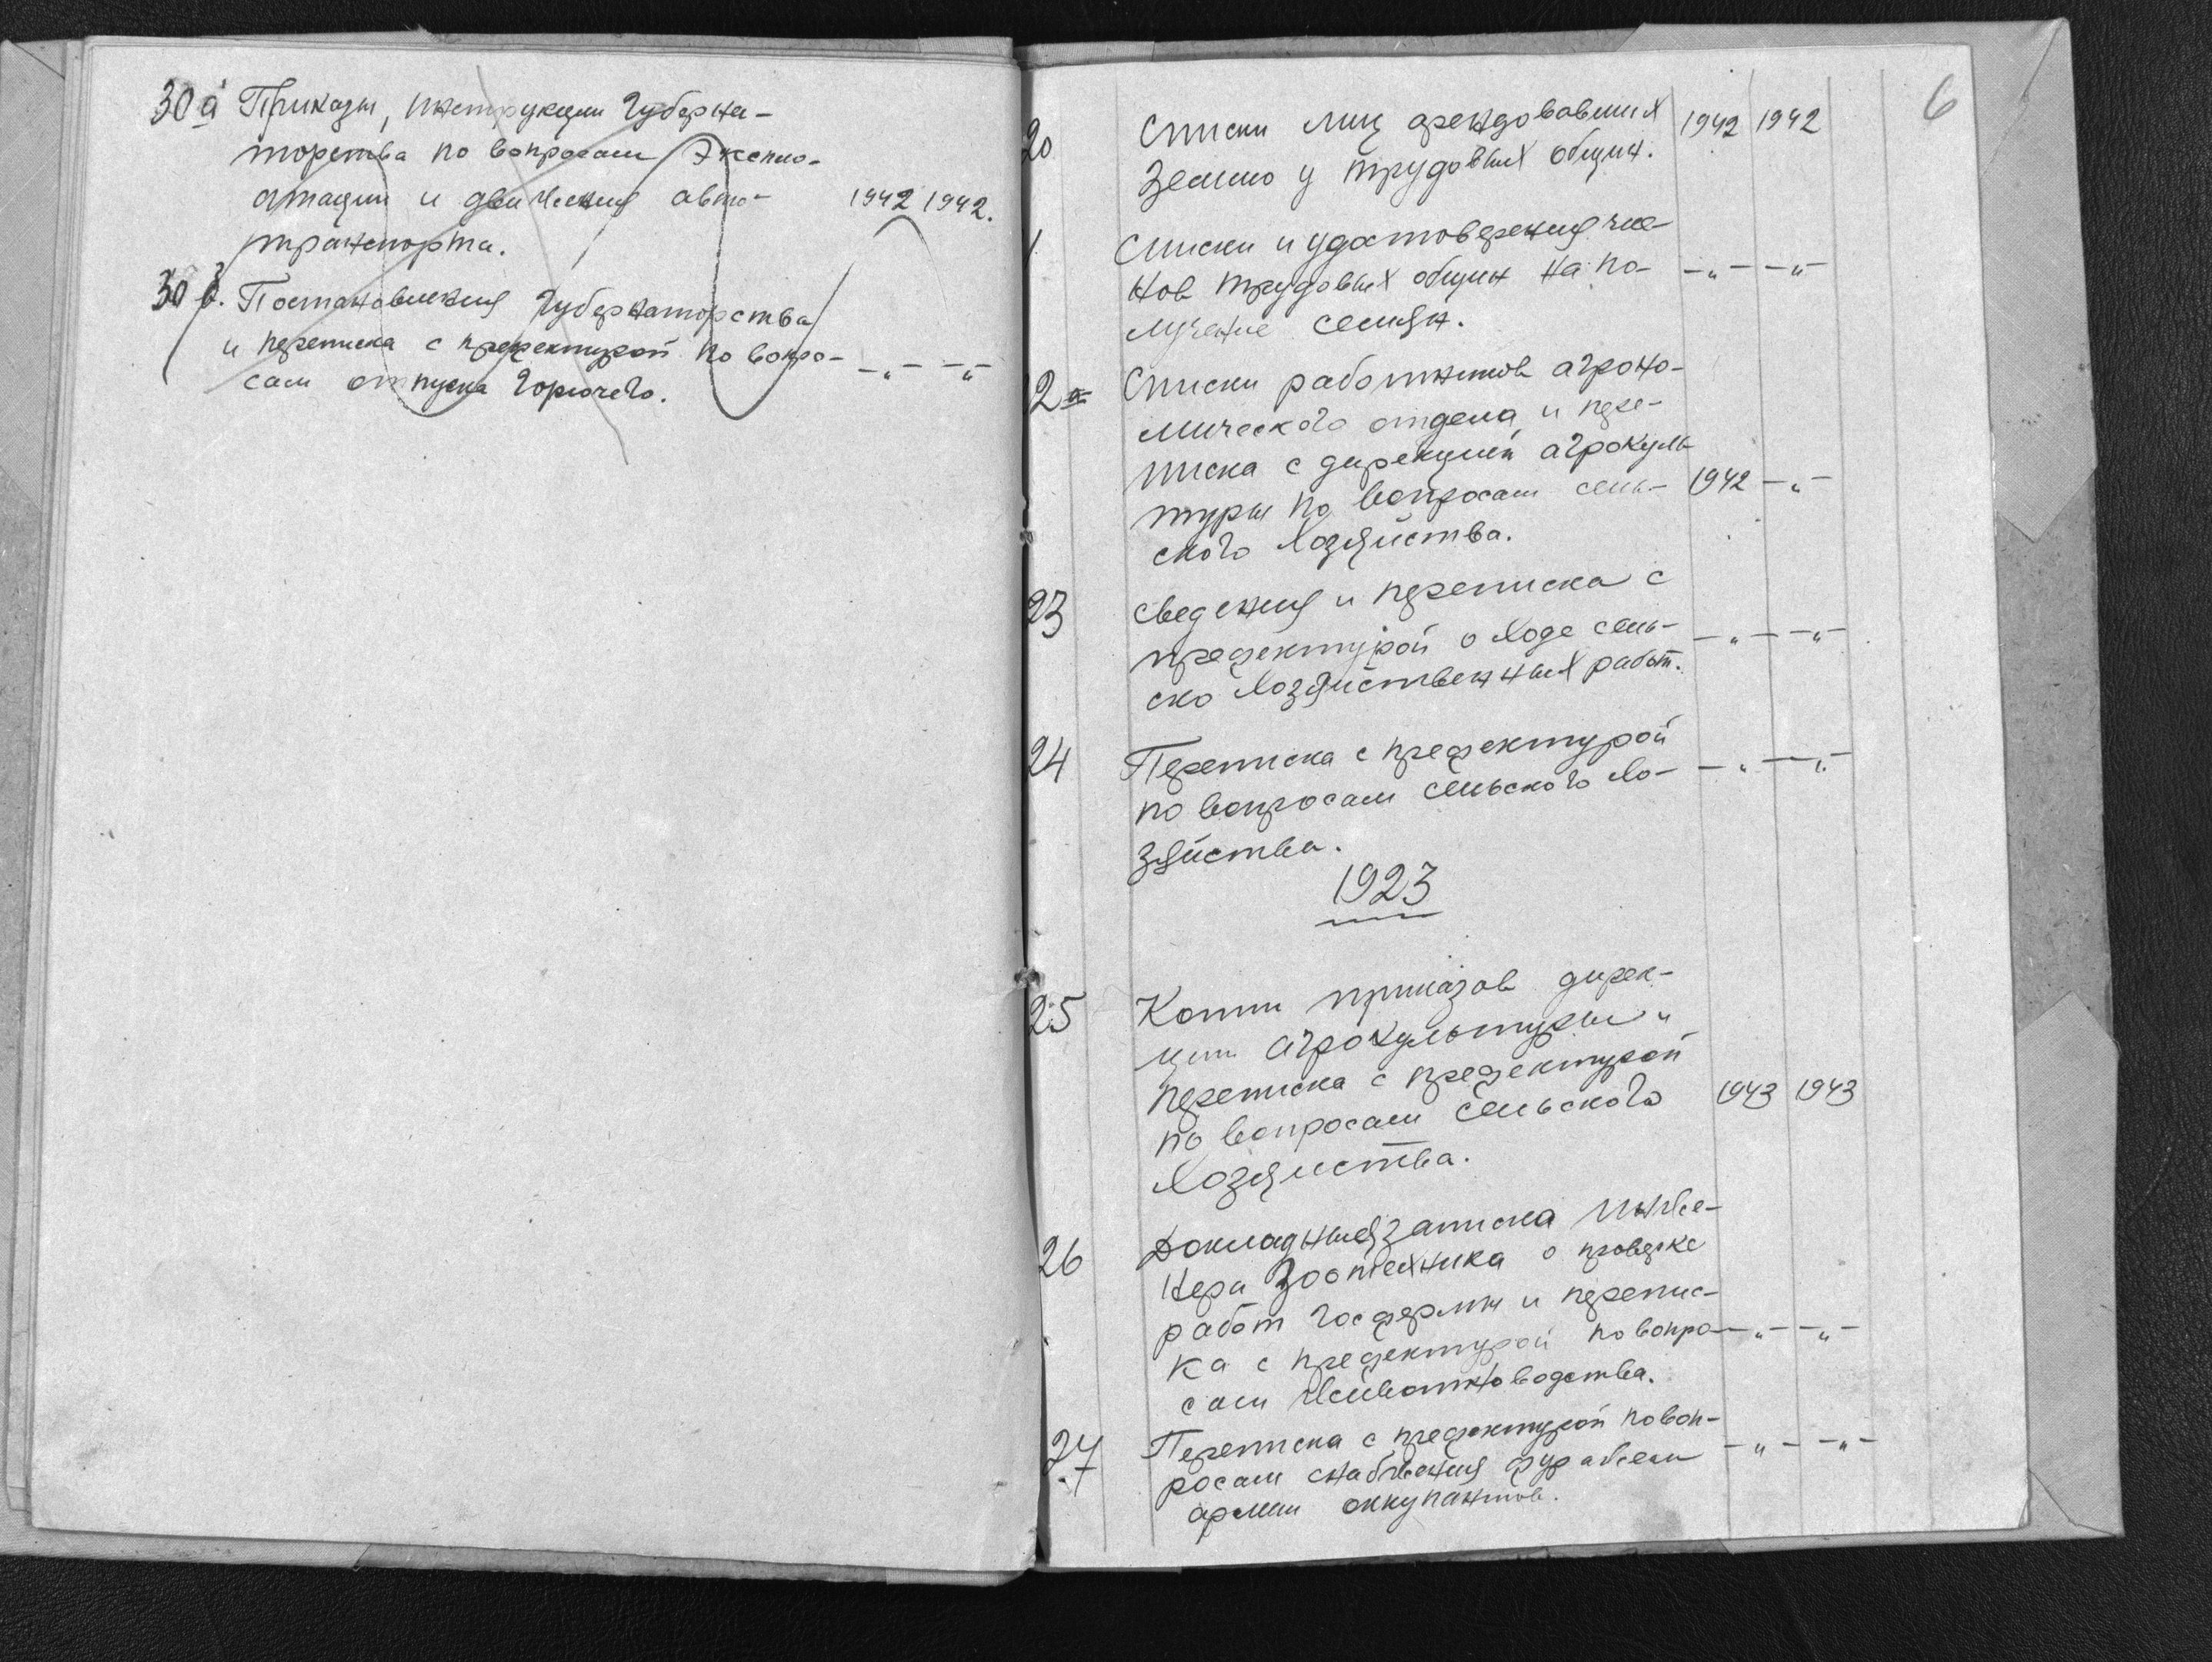 30 а Приказы, инструкции губерна-
торства по вопросам эксплo-
атации и движения авто- 1942 1942.
транспорта.
30 б. Постановления губернаторства
и переписка с префектурой по вопро- -"- -"-
сам отпуска горючего.
6
20 Списки лиц арендовавших 1942 1942
землю у трудовых общин.
1 Списки и удостоверения чле-
нов трудовых общин на по- -"- -"-
лучение семян.
2 Списки работников агроно-
мического отдела и пере-
писка с дирекцией агрокуль-
туры по вопросам сель- 1942 -"-
ского хозяйства.
23 Сведения и переписка с
префектурой о ходе сель- -"- -"-
ско хозяйственных работ.
24 Переписка с префектурой
по вопросам сельского хо- -"- -"-
зяйства.
1923
25 Копии приказов дирек-
ции агрокультуры и
переписка с префектурой
по вопросам сельского 1943 1943
хозяйства.
26 Докладная записка инже-
нера зоотехника о проверке
работ госфермы и перепис-
ка с префектурой по вопро- -"- -"-
сам животноводства.
27 Переписка с префектурой по воп-
росам снабжения фуражем -"- -"-
армии оккупантов.